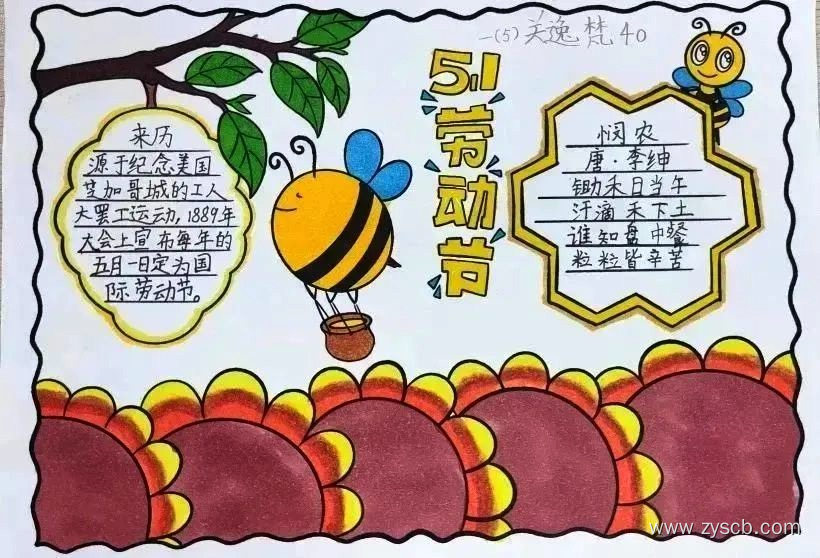 一(5) 关逸梵 40
5.1劳动节
来历
源于纪念美国
芝加哥城的工人
大罢工运动,1889年
大会上宣布每年的
五月一日定为国
际劳动节。
悯农
唐·李绅
锄禾日当午
汗滴禾下土
谁知盘中餐
粒粒皆辛苦
www.zyscb.com